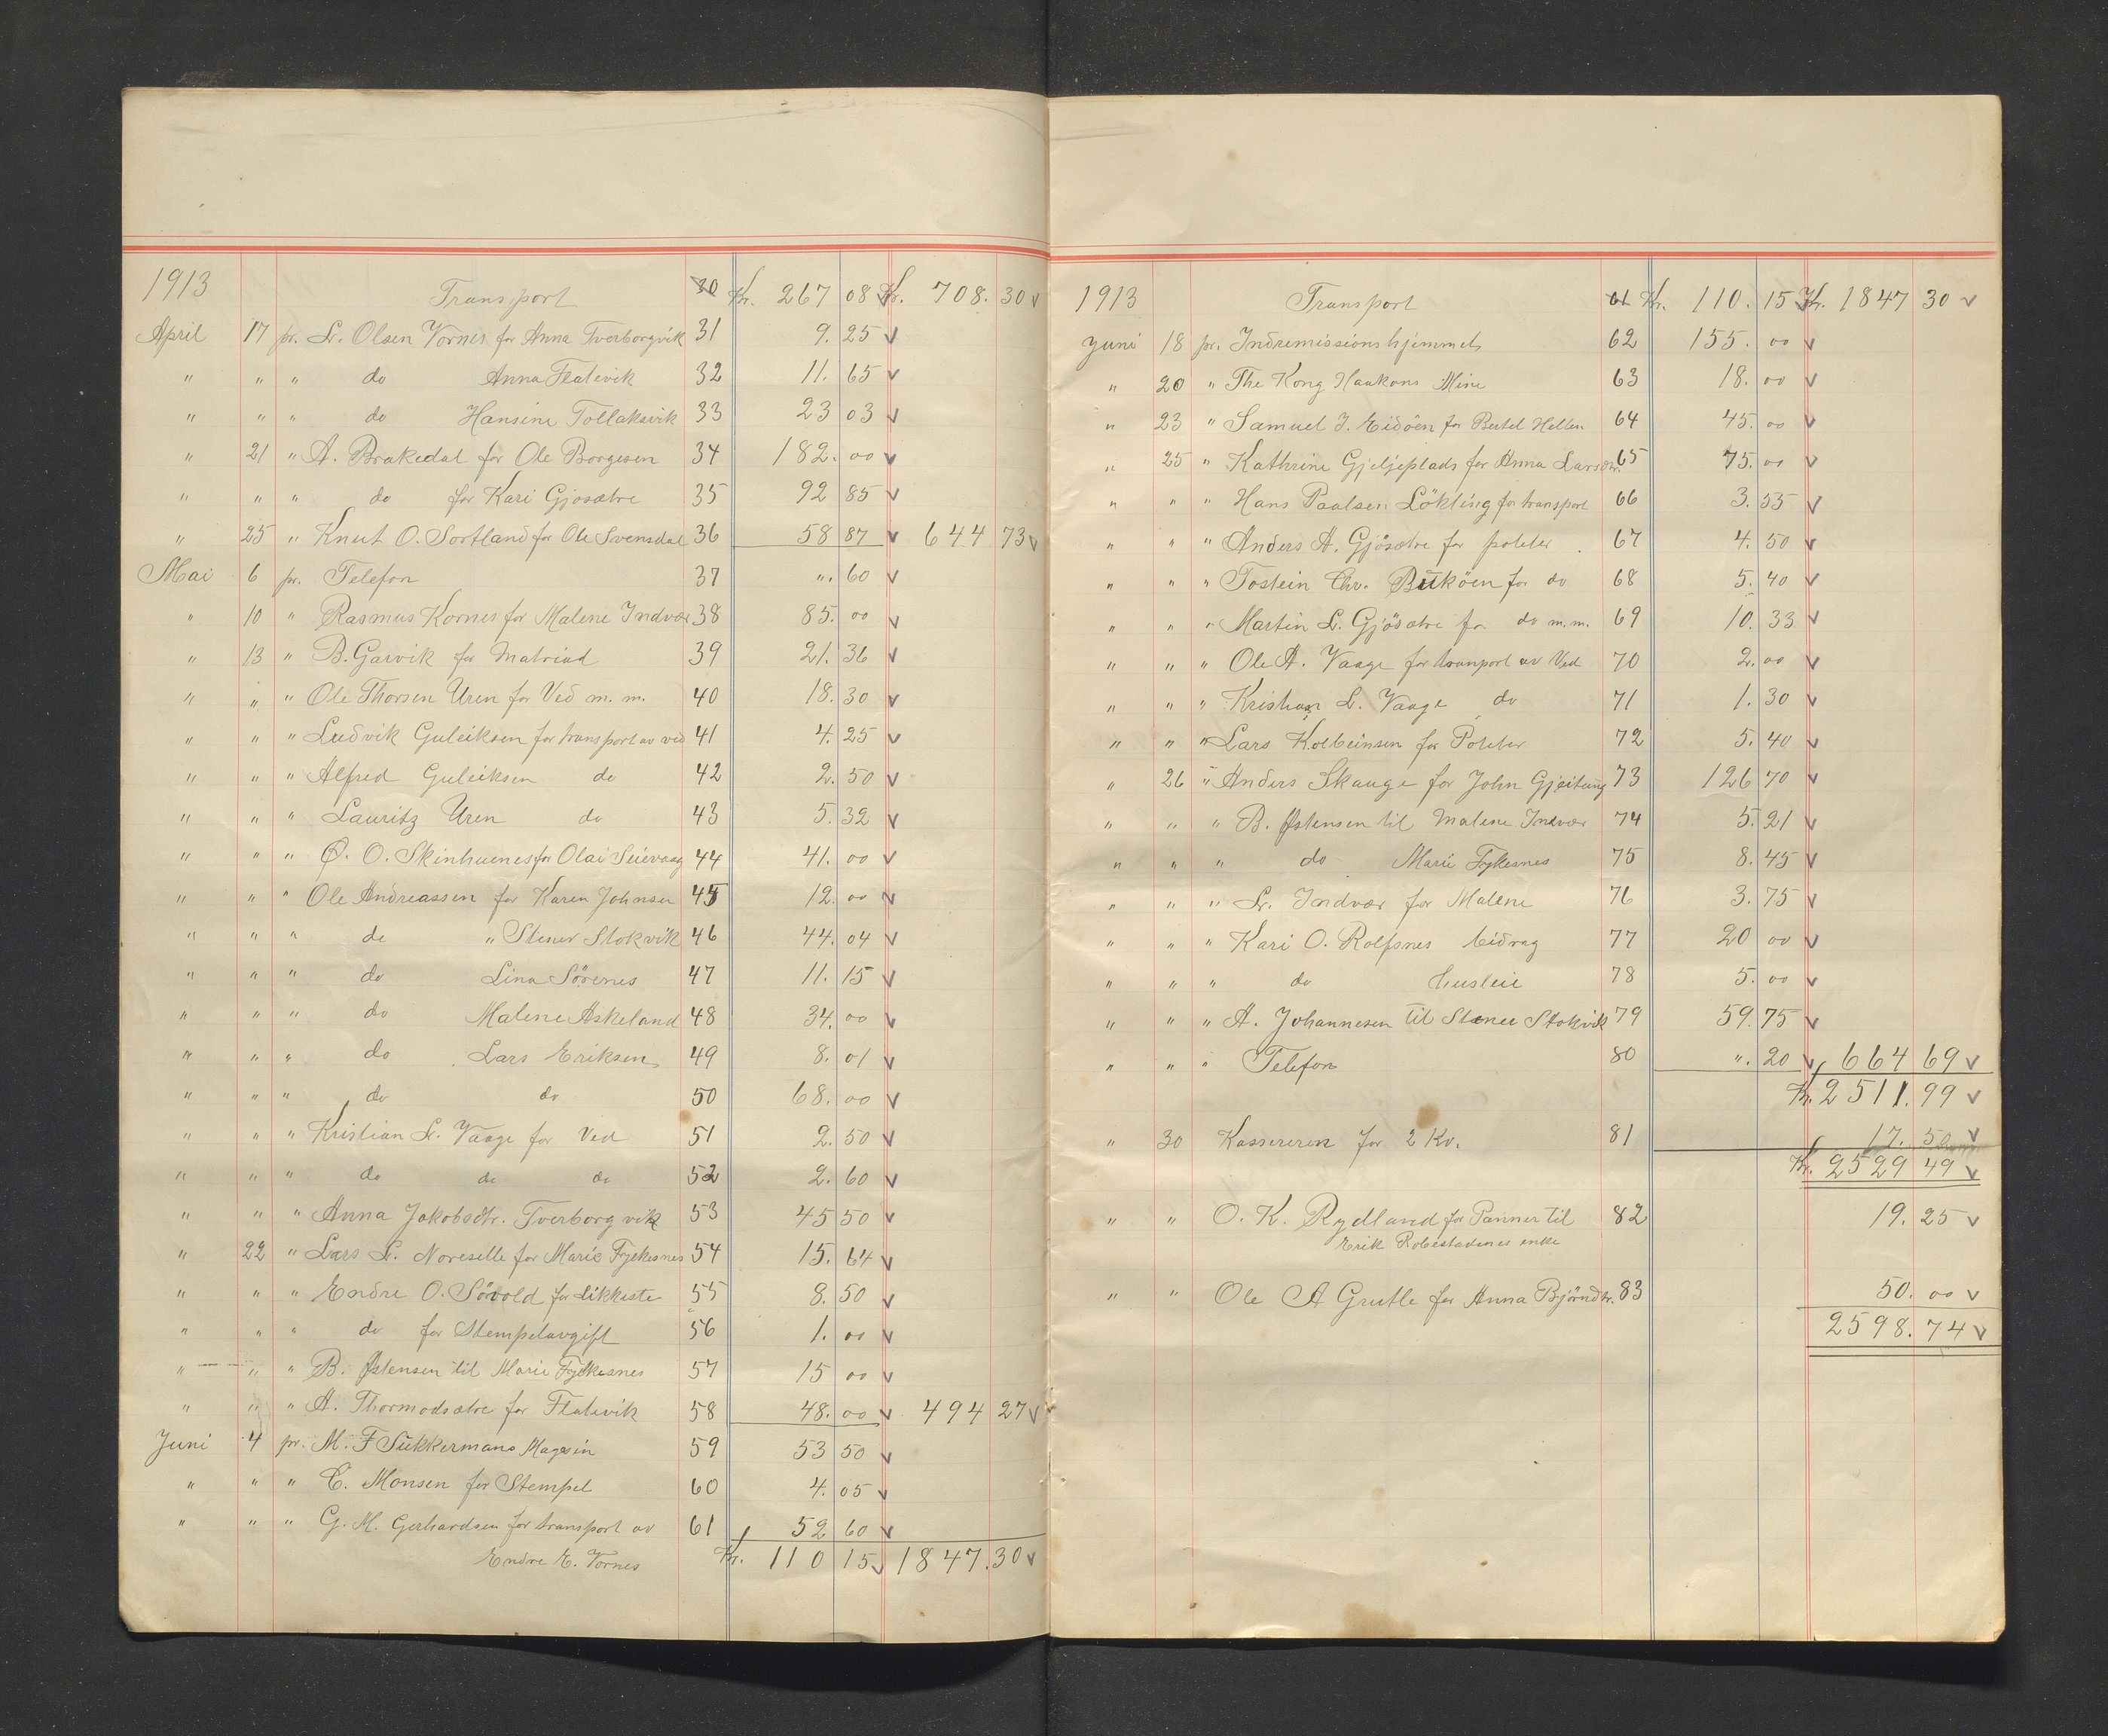 1913 Transport 30 Kr. 267 08 Kr. 708. 30
April 17 pr. L. Olsen Vornes for Anna Tverborgvik 31 9. 25
" " " do Anna Flatevik 32 11. 65
" " " do Hansine Tollaksvik 33 23 03
" 21 " A. Brakedal for Ole Borgesen 34 182. 00
" " " do for Kari Gjosætre 35 92 85
" 25 " Knut O. Sortland for Ole Svensdal 36 58 87 644 73
Mai 6 pr. Telefon 37 ". 60
" 10 " Rasmus Kornes for Malene Indvær 38 85. 00
" 13 " B. Garvik for Matriad 39 21. 36
" " " Ole Thorsen Uren for Ved m. m. 40 18. 30
" " " Ludvik Guleiksen for transport av ved 41 4. 25
" " " Alfred Guleiksen do 42 2. 50
" " " Lauritz Uren do 43 5. 32
" " " Ø. O. Skinhuenes for Olai Seievaag 44 41. 00
" " " Ole Andreassen for Karen Johnsen 45 12. 00
" " " do " Stener Stokvik 46 44. 04
" " " do Lina Sörenes 47 11. 15
" " " do Malene Askeland 48 34. 00
" " " do Lars Eriksen 49 8. 01
" " " do do 50 68. 00
" " " Kristian L. Vaage for Ved 51 2. 50
" " " do do do 52 2. 60
" " " Anna Jakobsdtr. Tverborgvik 53 45 50
" 22 " Lars L. Noreselle for Marie Fykesnes 54 15. 64
" " " Endre O. Sövold for Likkiste 55 8. 50
" " " do for Stempelavgift 56 1. 00
" " " B. Østensen til Marie Fykesnes 57 15 00
" " " A. Thormodsætre for Flatevik 58 48. 00 494 27
Juni 4 pr. M. F Sukkermans Magesin 59 53 50
" " " C. Monsen for Stempel 60 4. 05
" " " G. M. Gerhardsen for transport av 61 52 60
Endre E. Vornes Kr. 110 15 1847. 30
1913 Transport 61 Kr. 110. 15 Kr. 1847 30
Juni 18 pr. Indremissionshjemmets 62 155. 00
" 20 " The Kong Haakons Mine 63 18. 00
" 23 " Samuel J. Eidöen for Bertel Hellen 64 45. 00
" 25 " Kathrine Gjeljeplads for Anna Larsdtr. 65 75. 00
" " " Hans Paalsen Lökling for transport 66 3. 55
" " " Anders A. Gjösætre for poteter 67 4. 50
" " " Tostein Chr. Buköen for do 68 5. 40
" " " Martin L. Gjösætre for do m. m. 69 10. 33
" " " Ole A. Vaage for transport av Ved 70 2. 00
" " " Kristian L. Vaage do 71 1. 30
" " " Lars Kolbeinsen for Poteter 72 5. 40
" 26 " Anders Skauge for John Gjeitung 73 126 70
" " " B. Østensen til Malene Indvær 74 5. 21
" " " do Marie Fykesnes 75 8. 45
" " " L. Indvær for Malene 76 3. 75
" " " Kari O. Rolfsnes bidrag 77 20 00
" " " do husleie 78 5. 00
" " " A. Johannesen til Stener Stokvik 79 59. 75
" " " Telefon 80 ". 20 664 69
Kr. 2511. 99
" 30 Kassereren for 2 Kv. 81 17. 50
Kr. 2529 49
" " O. K. Rydland for Panner til 82 19. 25
Erik Robestadnes enke
" " Ole A Grutle for Anna Bjørnsdtr. 83 50. 00
2598. 74